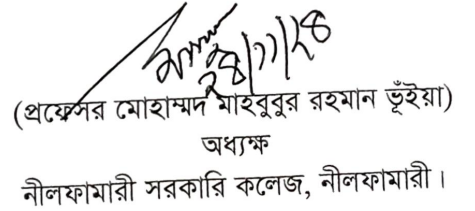 ২৪/১১/২৪
(প্রফেসর মোহাম্মদ মাহবুবুর রহমান ভূঁইয়া)
অধ্যক্ষ
নীলফামারী সরকারি কলেজ, নীলফামারী।